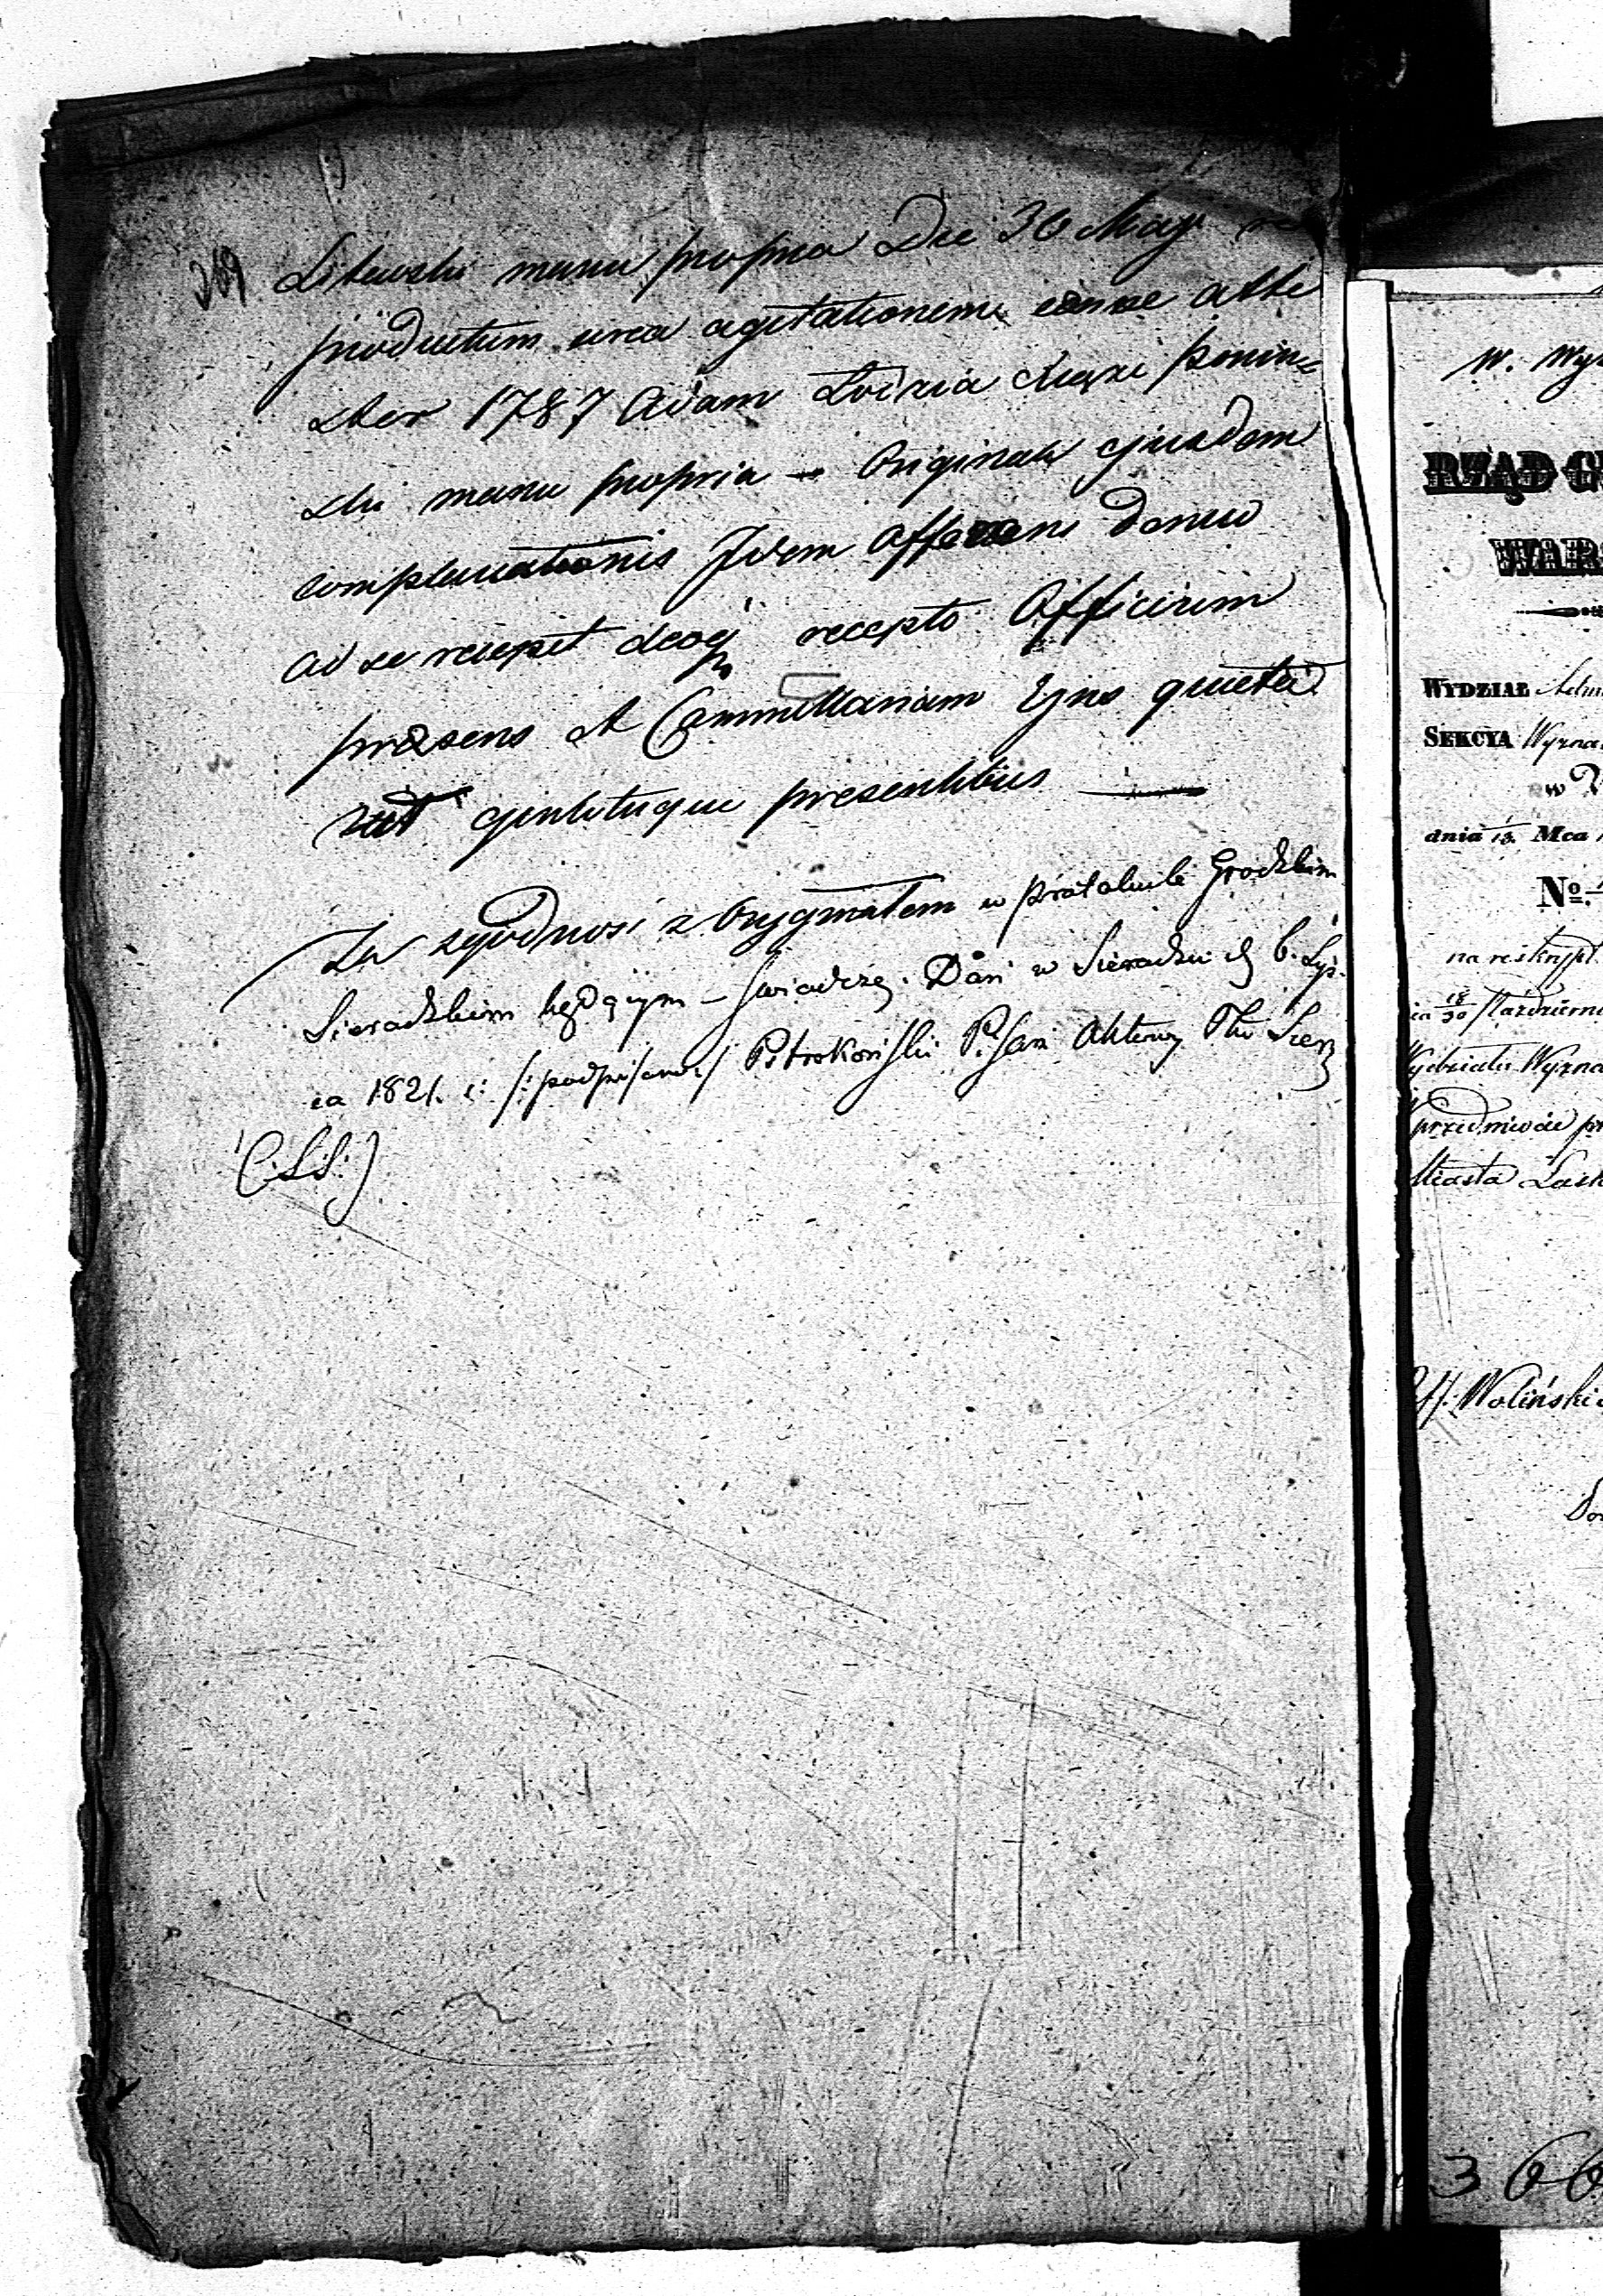 269
Litewski manu propria Die 30 May
productum circa agitationem cause atte
stor 1787 Adam Łodzia Xiąże Ponin=
ski manu propria – Originale ejusdem
complanationis Idem Offerens denuo
ad se recepit deoq recepto Officium
præsens et Cancellariam Ejus quieta
vit quietatque presentibus
Za zgodność z Oryginałem w Protokule Grodzkim
Sieradzkim będącym – świadczę. Dań w Sieradzu d 6. Lip=
ca 1821. r: /:podpisano:/ Petrokoński Pisarz Aktowy Ptu Sier
(:L.S:)
W.
RZĄD G
WAR
WYDZIAŁ
SEKCYA Wyzna
w
dnia 13. Mca
No.
na reskrypt
18/30 Październi
Wydziału Wyzna
przedmiocie
Miasta Łask
Woliński
366